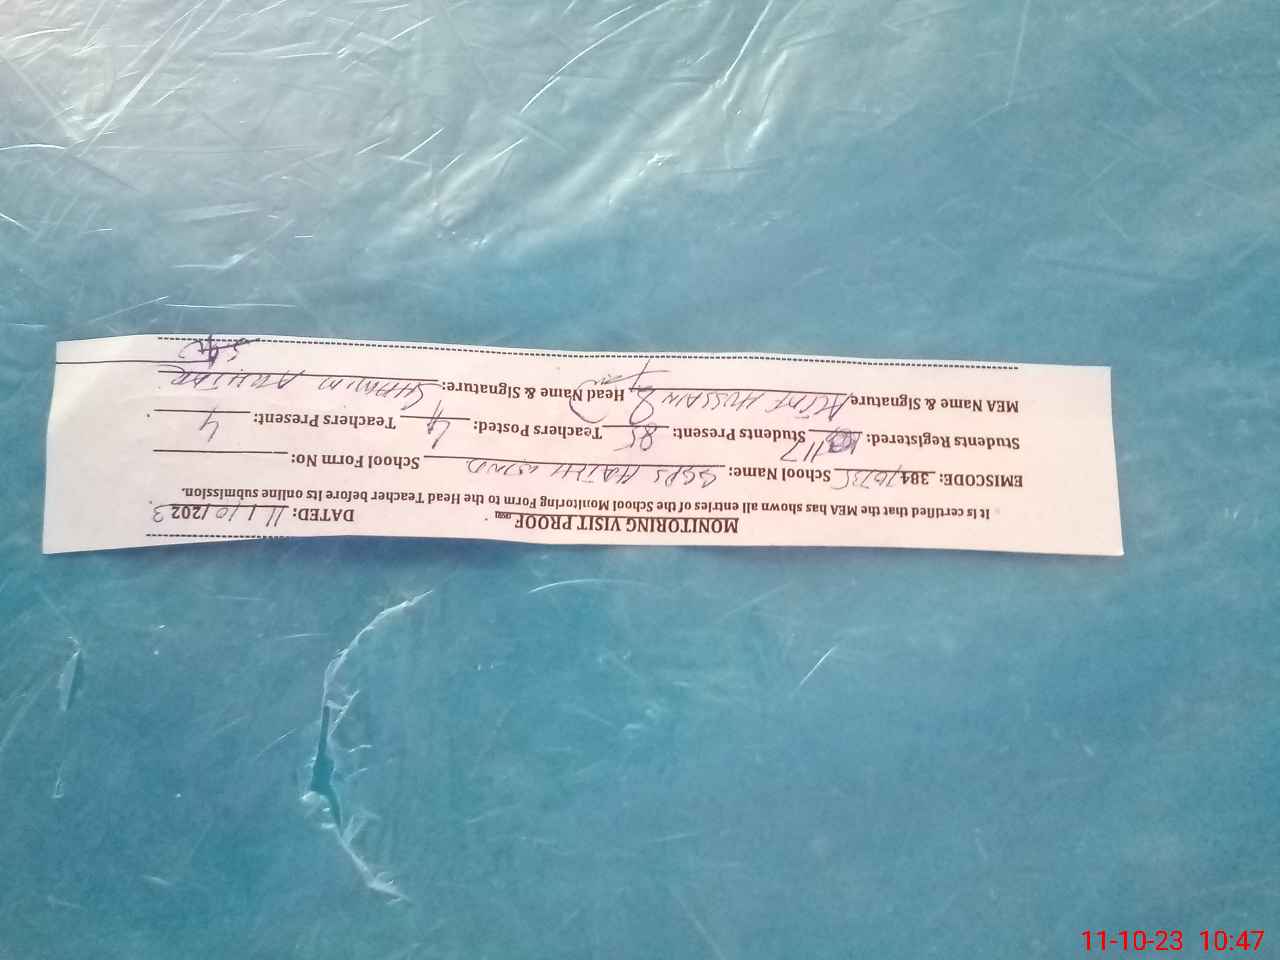 MONITORING VISIT PROOF DATED: 11/10/2023
It is certified that the MEA has shown all entries of the School Monitoring Form to the Head Teacher before its online submission.
EMISCODE: 384 School Name: School Form No:
Students Registered: 117 Students Present: 85 Teachers Posted: 4 Teachers Present: 4
MEA Name & Signature HUSSAIN Head Name & Signature: SHAMIM AKHTAR
11-10-23 10:47